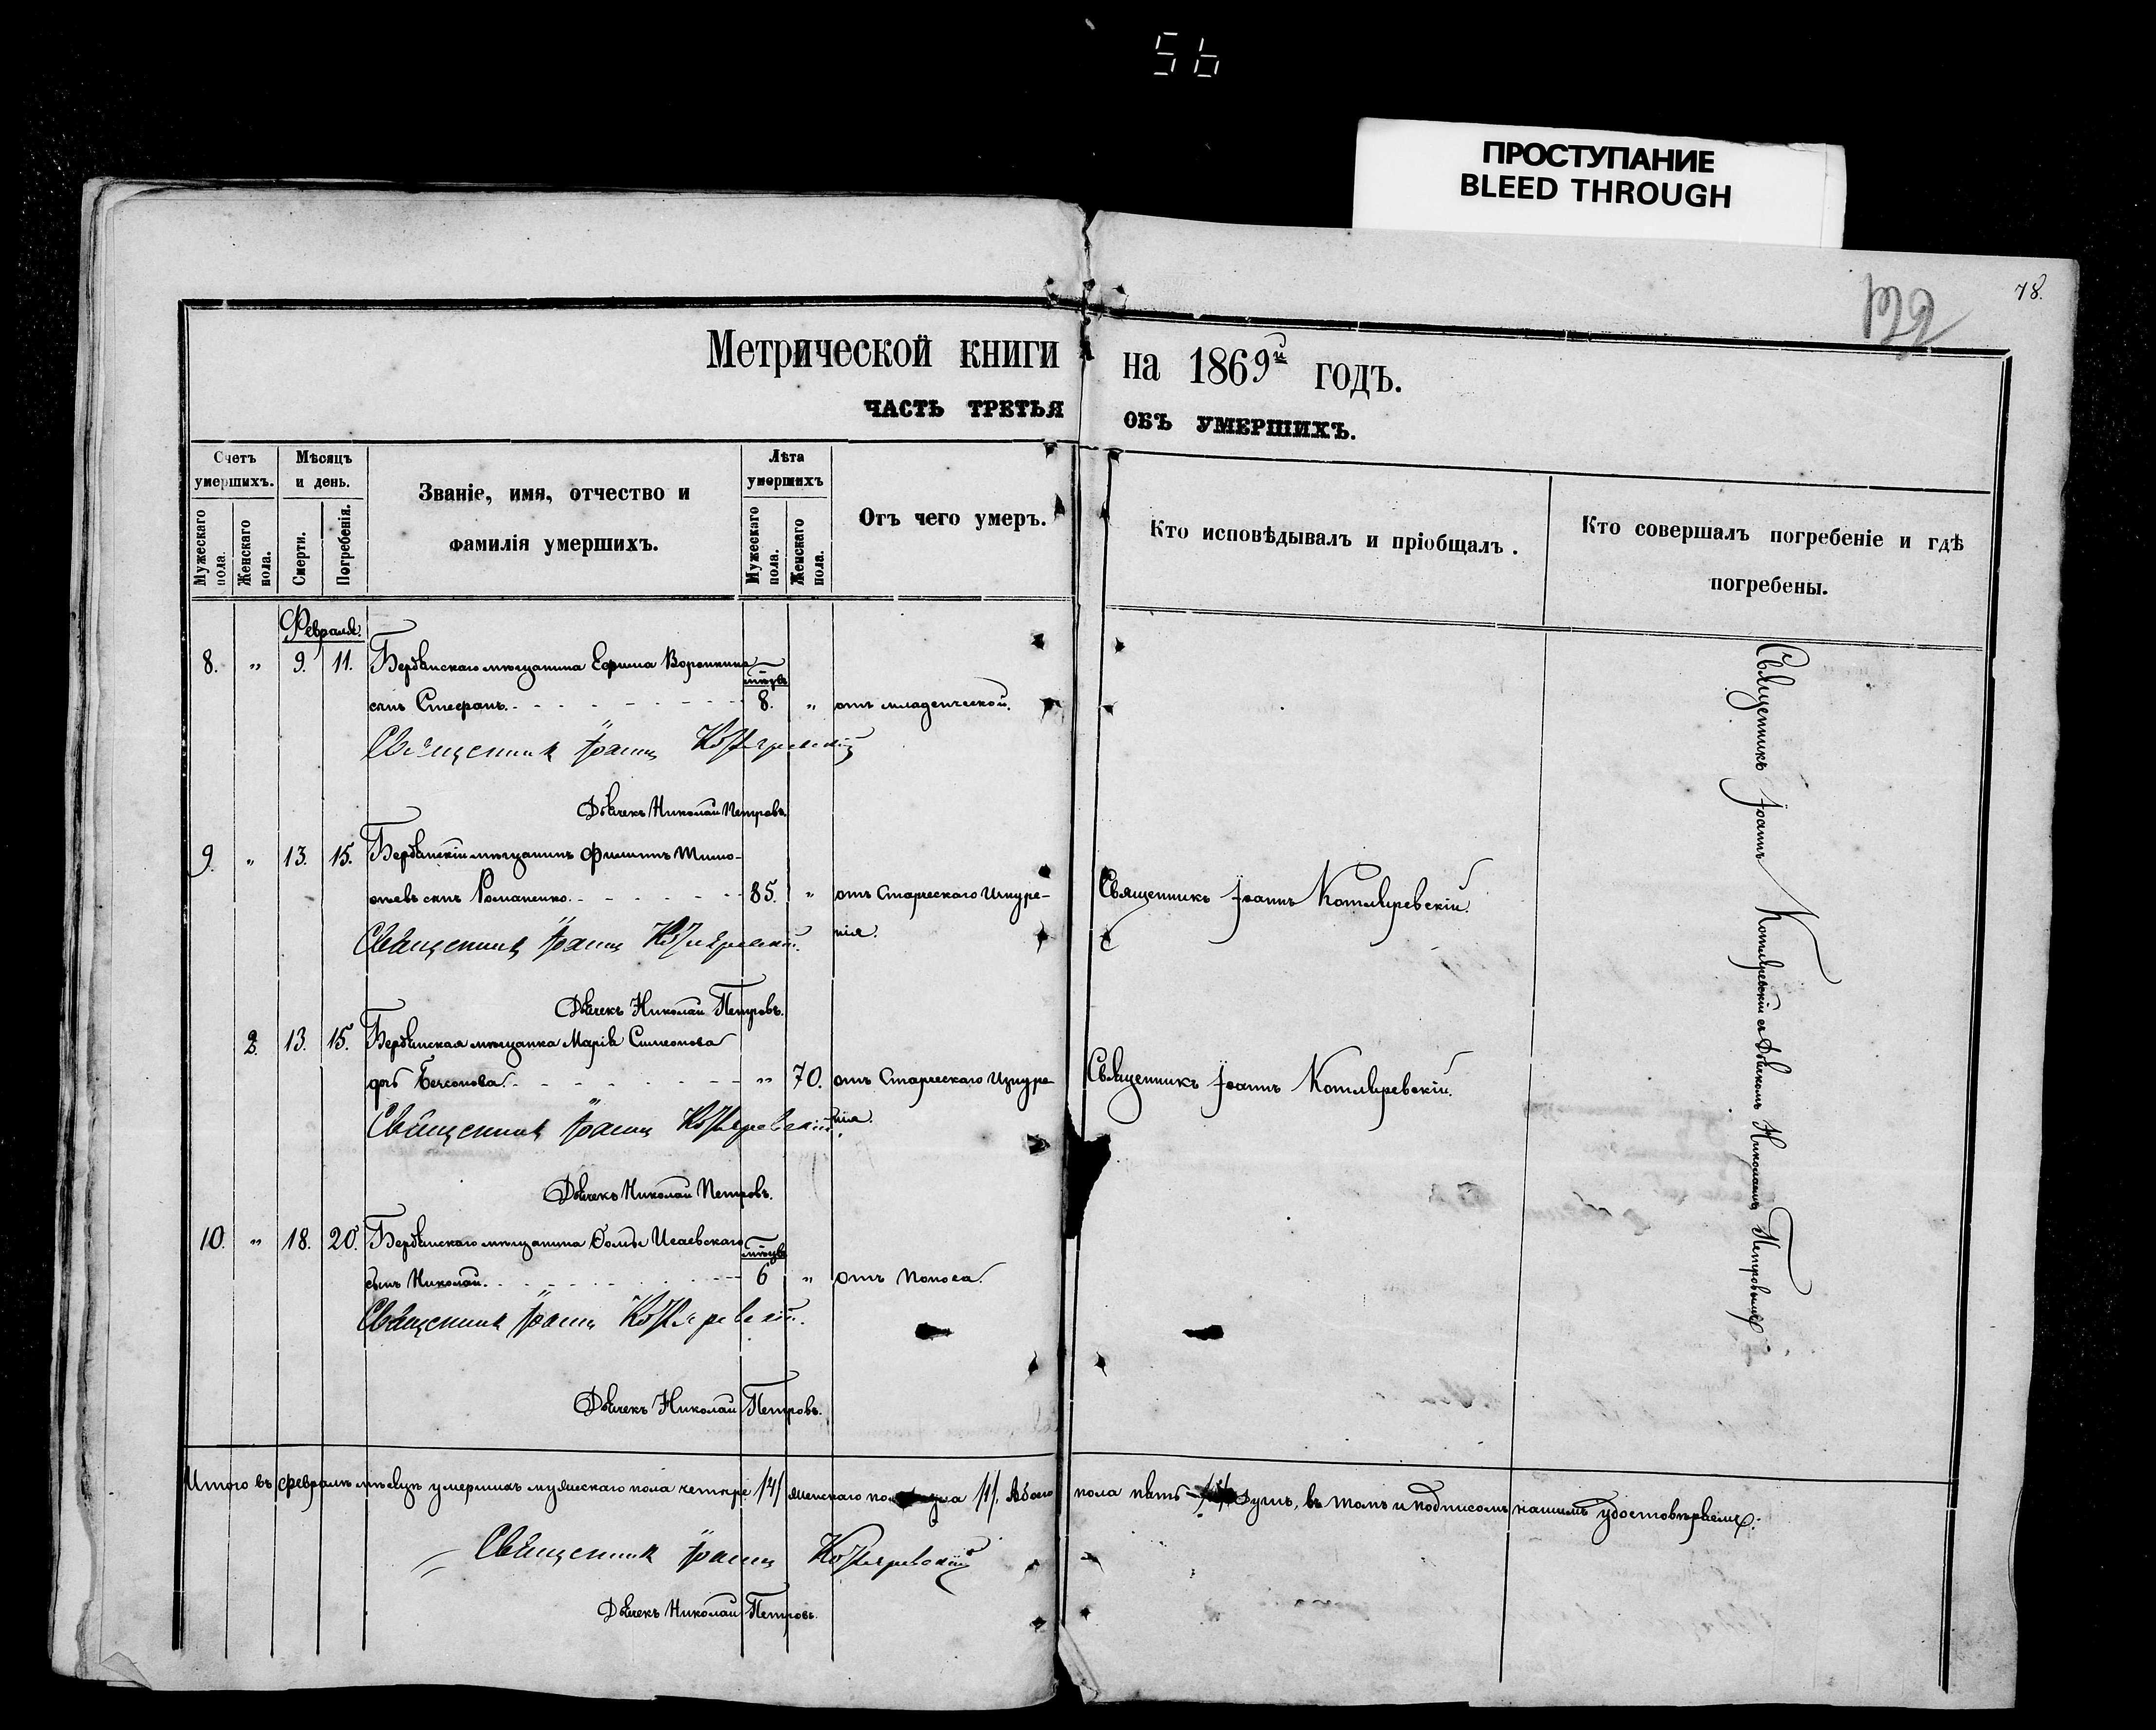 56
ПРОСТУПАНИЕ
BLEED THROUGH
78.
Метрической книги на 1869й годъ.
ЧАСТЬ ТРЕТЬЯ ОБЪ УМЕРШИХЪ.
Счетъ умершихъ.
Мужескаго пола.
Женскаго пола.
Мѣсяцъ и день.
Смерти.
Погребенія.
Званіе, имя, отчество и
фамилія умершихъ.
Лѣта умершихъ
Мужескаго пола.
Женскаго пола.
Отъ чего умеръ.
Кто исповѣдывалъ и пріобщалъ.
Кто совершалъ погребеніе и гдѣ
погребены.
Февраля.
8. " 9. 11. Бердянскаго мѣщанина Ефима Воронкина
сынъ Стефанъ. 8. " отъ младенческой.
Священникъ Іоаннъ Котляревскій
Дьячекъ Николай Петровъ.
9. " 13. 15. Бердянскій мѣщанинъ Филиппъ Тимо-
ѳеевъ сынъ Романенко. 85. " отъ Старческаго Изнуре- Священникъ Іоаннъ Котляревскій.
нія.
Священникъ Іоаннъ Котляревскій.
Дьячекъ Николай Петровъ.
2. 13. 15. Бердянская мѣщанка Марія Симеонова
дочь Бессонова. " 70. отъ Старческаго Изнуре Священникъ Іоаннъ Котляревскій.
нія.
Священникъ Іоаннъ Котляревскій.
Дьячекъ Николай Петровъ.
10. " 18. 20. Бердянскаго мѣщанина Ѳомы Исаевскаго
сынъ Николай. 6 " отъ поноса.
Священникъ Іоаннъ Котляревскій.
Дьячекъ Николай Петровъ.
Священникъ Іоаннъ Котляревскій съ Дьячкомъ Николаемъ Петровымъ
Итого въ февралѣ мѣсяцѣ умершихъ мужескаго пола четыре /4/ женскаго пола одна /1/. Обоего пола пять душъ, въ томъ и подписомъ нашимъ удостовѣряемъ:
Священникъ Іоаннъ Котляревскій
Дьячекъ Николай Петровъ.